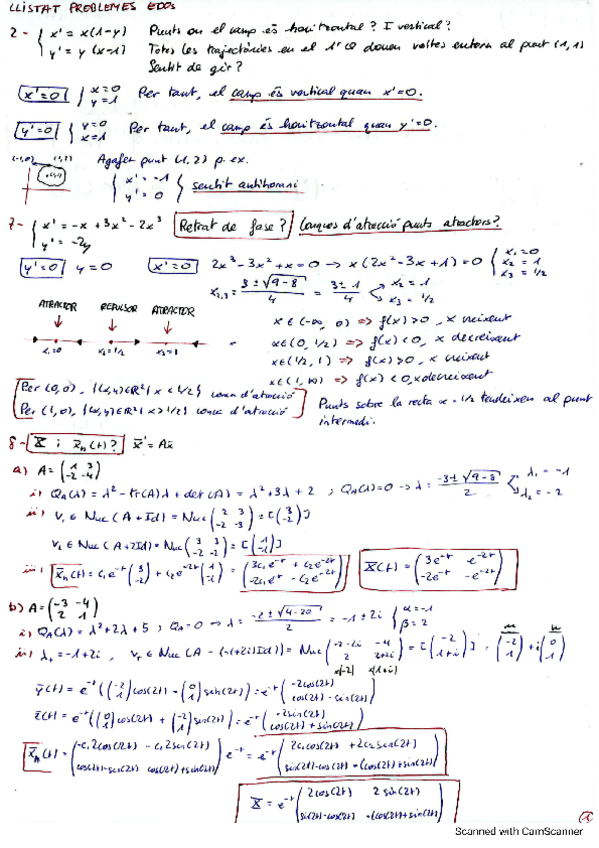 LLISTAT PROBLEMES EDOs
2- { x' = x(1-y) Punts on el camp és horitzontal? I vertical?
y' = y(x-1) Totes les trajectòries en el 1er Q donen voltes entorn al punt (1,1)
Sentit de gir?
x'=0 { x=0 y=1 Per tant, el camp és vertical quan x'=0.
y'=0 { y=0 x=1 Per tant, el camp és horitzontal quan y'=0.
Agafem punt (1,2) p. ex.
{ x' = -1 y' = 0 } sentit antihorari
7- { x' = -x + 3x² - 2x³ Retrat de fase? Conques d'atracció punts atractors?
y' = -2y
y'=0 y=0 x'=0 2x³-3x²+x=0 → x(2x²-3x+1)=0 { x₁=0 x₂=1 x₃=1/2
x₂,₃ = 3±√9-8 / 4 = 3±1 / 4 x₂=1 x₃=1/2
ATRACTOR REPULSOR ATRACTOR
x₁=0 x₂=1/2 x₃=1
x∈(-∞, 0) => f(x)>0, x creixent
x∈(0, 1/2) => f(x)<0, x decreixent
x∈(1/2, 1) => f(x)>0, x creixent
x∈(1, ∞) => f(x)<0, x decreixent
Per (0,0), {(x,y)∈ℝ² | x < 1/2} conca d'atracció
Per (1,0), {(x,y)∈ℝ² | x > 1/2} conca d'atracció
Punts sobre la recta x=1/2 tendeixen al punt
intermedi.
8- X i x̄ₕ(t)? x̄' = Ax̄
a) A = (1 3 / -2 -4)
i) Q_A(λ) = λ² - tr(A)λ + det(A) = λ²+3λ+2 ; Q_A(λ)=0 → λ = -3±√9-8 / 2 λ₁=-1 λ₂=-2
ii) v₁ ∈ Nuc(A+Id) = Nuc(2 3 / -2 -3) = [(3 / -2)]
v₂ ∈ Nuc(A+2Id) = Nuc(3 3 / -2 -2) = [(1 / -1)]
iii) x̄ₕ(t) = c₁e^-t (3 / -2) + c₂e^-2t (1 / -1) = (3c₁e^-t + c₂e^-2t / -2c₁e^-t - c₂e^-2t) X(t) = (3e^-t e^-2t / -2e^-t -e^-2t)
b) A = (-3 -4 / 2 1)
i) Q_A(λ) = λ²+2λ+5 ; Q_A=0 → λ = -2±√4-20 / 2 = -1±2i { α=-1 β=2
ii) λ₁ = -1+2i, v₁ ∈ Nuc(A-(-1+2i)Id) = Nuc(-2-2i -4 / 2 2-2i) = [(-2 / 1+i)] = (-2 / 1) + i(0 / 1)
ȳ(t) = e^-t((-2 / 1)cos(2t) - (0 / 1)sin(2t)) = e^-t(-2cos(2t) / cos(2t) - sin(2t))
z̄(t) = e^-t((0 / 1)cos(2t) + (-2 / 1)sin(2t)) = e^-t(-2sin(2t) / cos(2t)+sin(2t))
x̄ₕ(t) = (-c₁2cos(2t) - c₂2sin(2t) / cos(2t)-sin(2t) cos(2t)+sin(2t)) e^-t = e^-t(2c₁cos(2t) + 2c₂sin(2t) / sin(2t)-cos(2t) -(cos(2t)+sin(2t)))
X = e^-t(2cos(2t) 2sin(2t) / sin(2t)-cos(2t) -(cos(2t)+sin(2t)))
1
Scanned with CamScanner